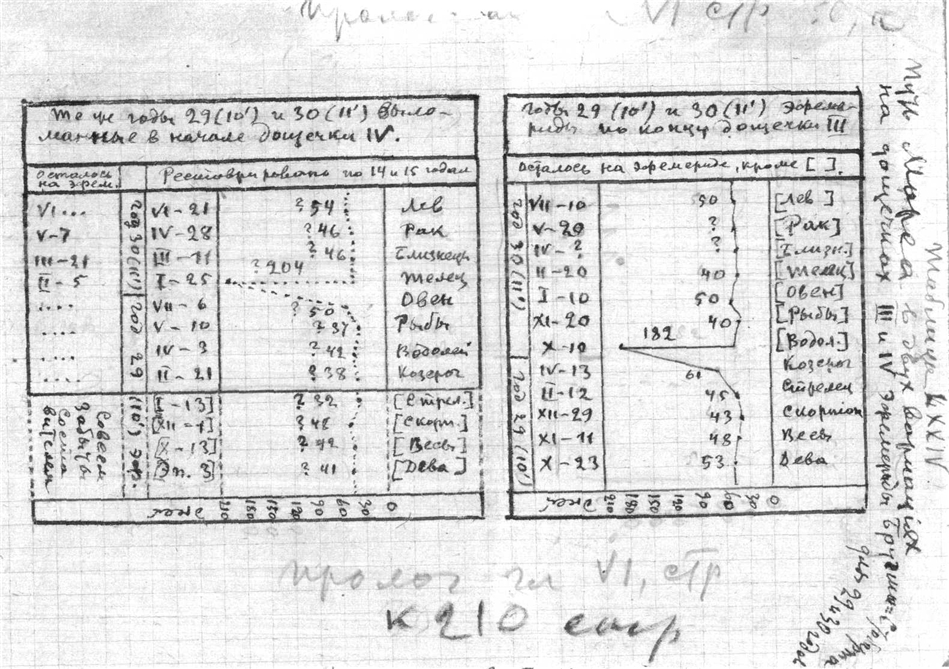 Пролог VI стр
Таблица XXXIV.
Путь Марса в двух вариациях
на дощечках III и IV эфемерид Бругша
для 29 и 30 годов
Те же годы 29 (10') и 30 (11') выло-
манные в начале дощечки IV.
Осталось на эфем. Реставрировано по 14 и 15 годам
год 30 (11')
VI.... VI - 21 ? 54 Лев
V - 7 IV - 28 ? 46 Рак
III - 21 III - 11 ? 46 Близнецы
II - 5 I - 25 ? 204 Телец
год 29
.... VII - 6 ? 50 Овен
.... V - 10 ? 37 Рыбы
.... IV - 3 ? 42 Водолей
.... II - 21 ? 38 Козерог
Совсем забыты
[I - 13] ? 32 [Стрел.]
[XII - 1] ? 42 [Скорп.]
[X - 13] ? 42 [Весы]
? 41 [Дева]
Дней 210 180 150 120 90 60 30 0
Годы 29 (10') и 30 (11') эфеме-
риды по концу дощечки III
Осталось на эфемериде, кроме [ ].
год 30 (11')
VII - 10 50 [Лев]
V - 20 ? [Рак]
IV - ? ? [Близн.]
II - 20 40 [Телец]
I - 10 50 [Овен]
XI - 20 40 [Рыбы]
X - 10 182 [Водол.]
год 29 (10')
IV - 13 61 Козерог
II - 12 45 Стрелец
XII - 29 43 Скорпион
XI - 11 48 Весы
X - 23 53 Дева
Дней 210 180 150 120 90 60 30 0
Пролог гл VI, стр
К 210 стр